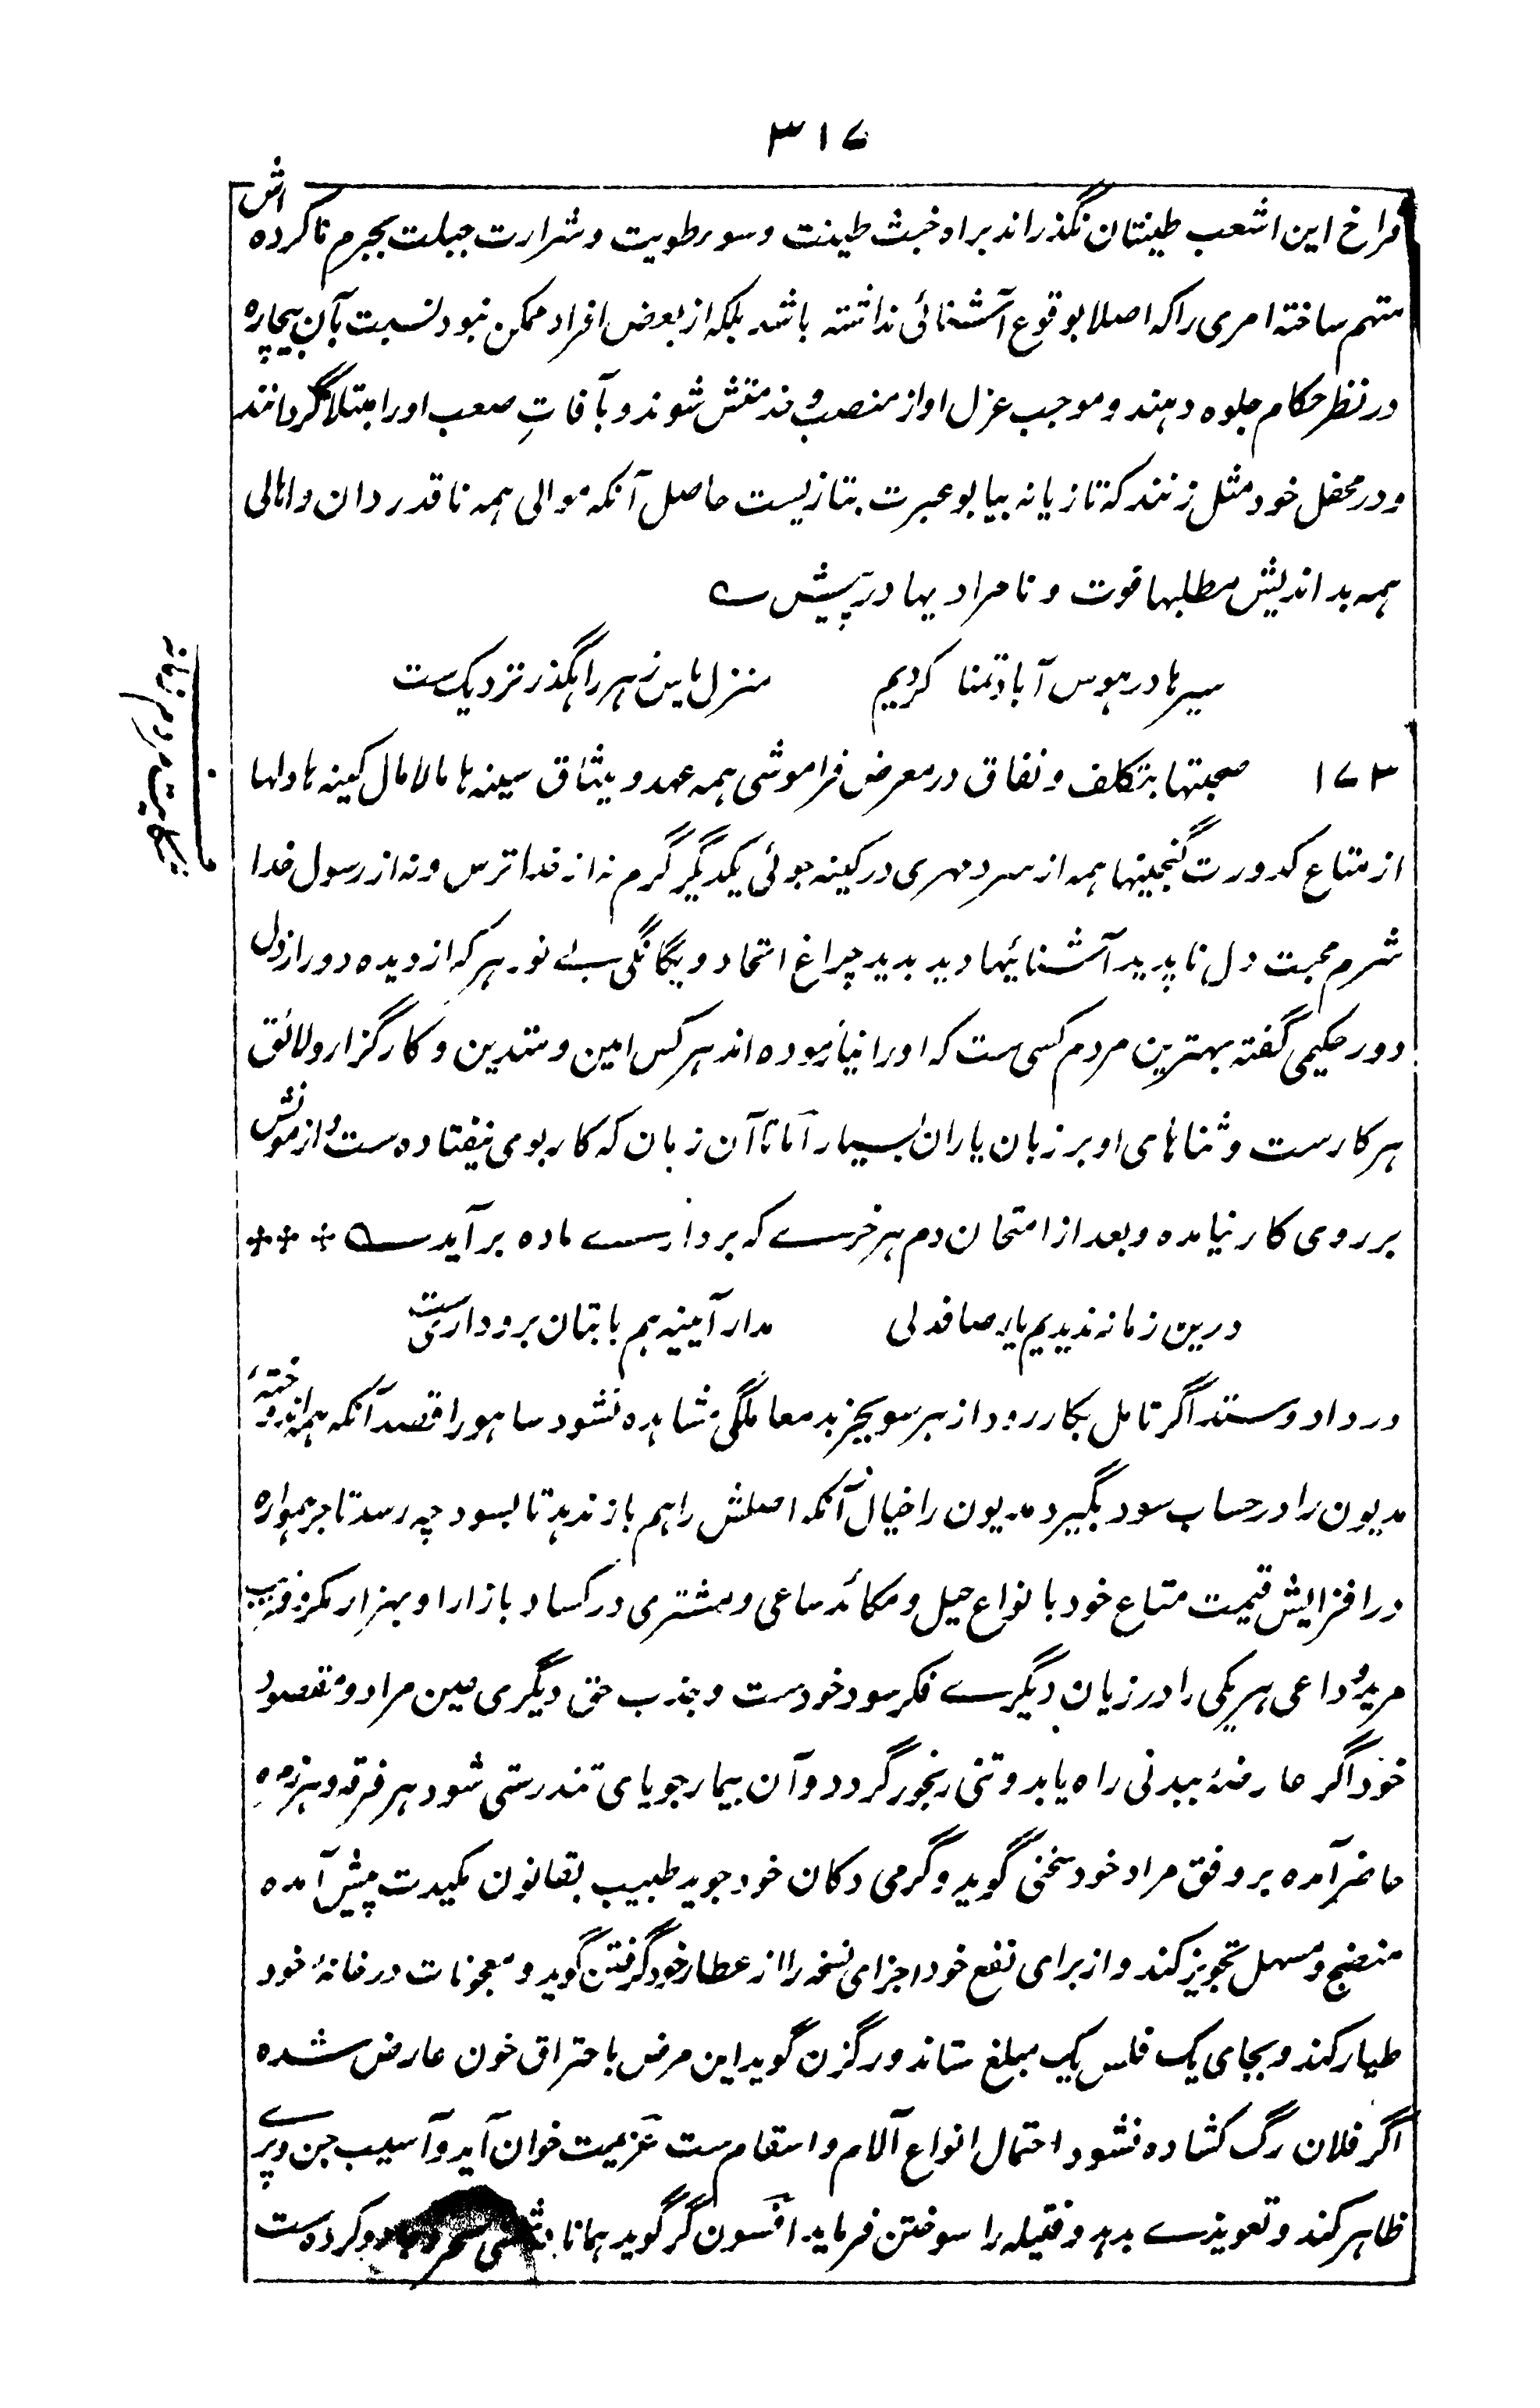 ۳۱۷
فراخ این اشعب طینتان نگذراند براه خبث طینت و سوء طویت و شرارت جبلت بجرم ناکرده اش
متهم ساخته امری را که اصلا بوقوع آشنائی نداشته باشد بلکه از بعض افراد ممکن نبود نسبت بآن بیچاره
در نظر حکام جلوه دهند و موجب عزل او از منصب و خدمتش شوند و بآفاتِ صعب او را مبتلا گردانند
و در محفل خود مثل زنند که تازیانه بیابو عبرت بتازیست حاصل آنکه موالی همه ناقدردان و اهالی
همه بداندیش مطلبها فوت و نامرادیها در پیش ے
سیرها در هوس آباد تمنا کردیم منزل یاس ز هر راهگذر نزدیک ست
۱۷۳ صحبتها بتکلف و نفاق در معرض فراموشی همه عهد و میثاق سینه ها مالامال کینه ها دلها
شکایت مردم زمانه
از متاع کدورت گنجینها همه از سرد مهری در کینه جوئی یکدیگر گرم نه از خدا ترس و نه از رسول خدا
شرم محبت دل ناپدید آشنائیها دید بدید چراغ اتحاد و یگانگی بے نور هر که از دیده دور از دل
دور حکیمی گفته بهترین مردم کسی ست که او را نیازموده اند هر کس امین و متدین و کارگزار و لائق
هر کارست و ثناهای او بر زبان یاران بسیار اما تا آن زبان که کار بوی نیفتاده ست و آزمونش
بر روی کار نیامده و بعد از امتحان دم هر خرے که بردارے ماده برآید ے
درین زمانه ندیدیم یار صافدلی مدار آیینه هم با بتان بروداری ست
در داد و ستد اگر تامل بکار رود از هر سو بجز بد معاملگی مشاهده نشود ساهو را قصد آنکه همه اندوختهٔ
مدیون را در حساب سود بگیرد مدیون را خیال آنکه اصلش را هم باز ندهد تا بسود چه رسد تاجر همواره
در افزایش قیمت متاع خود با نواع حیل و مکائد ساعی و مشتری در کساد بازار او بهزار مکر و فریب
مرید و داعی هر یکی را در زیان دیگرے فکر سود خودست و جذب حق دیگری عین مراد و مقصود
خود اگر عارضهٔ ببدنی راه یابد و تنی رنجور گردد و آن بیمار جویای تندرستی شود هر فرقه و هر زمره
حاضر آمده بر وفق مراد خود سخنی گوید و گرمی دکان خود جوید طبیب بقانون مکیدت پیش آمده
منضج و مسهل تجویز کند و از برای نفع خود اجزای نسخه را از عطار خود گرفتن گوید و معجونات در خانهٔ خود
طیار کند و بجای یک فلس یک مبلغ ستاند و رگزن گوید این مرض باحتراق خون عارض شده
اگر فلان رگ کشاده نشود احتمال انواع آلام و اسقام ست عزیمت خوان آید و آسیب جن و پرے
ظاهر کند و تعویذے بدهد و فتیله را سوختن فرماید افسون گر گوید همانا دشمنی سحر و جادو کرده ست